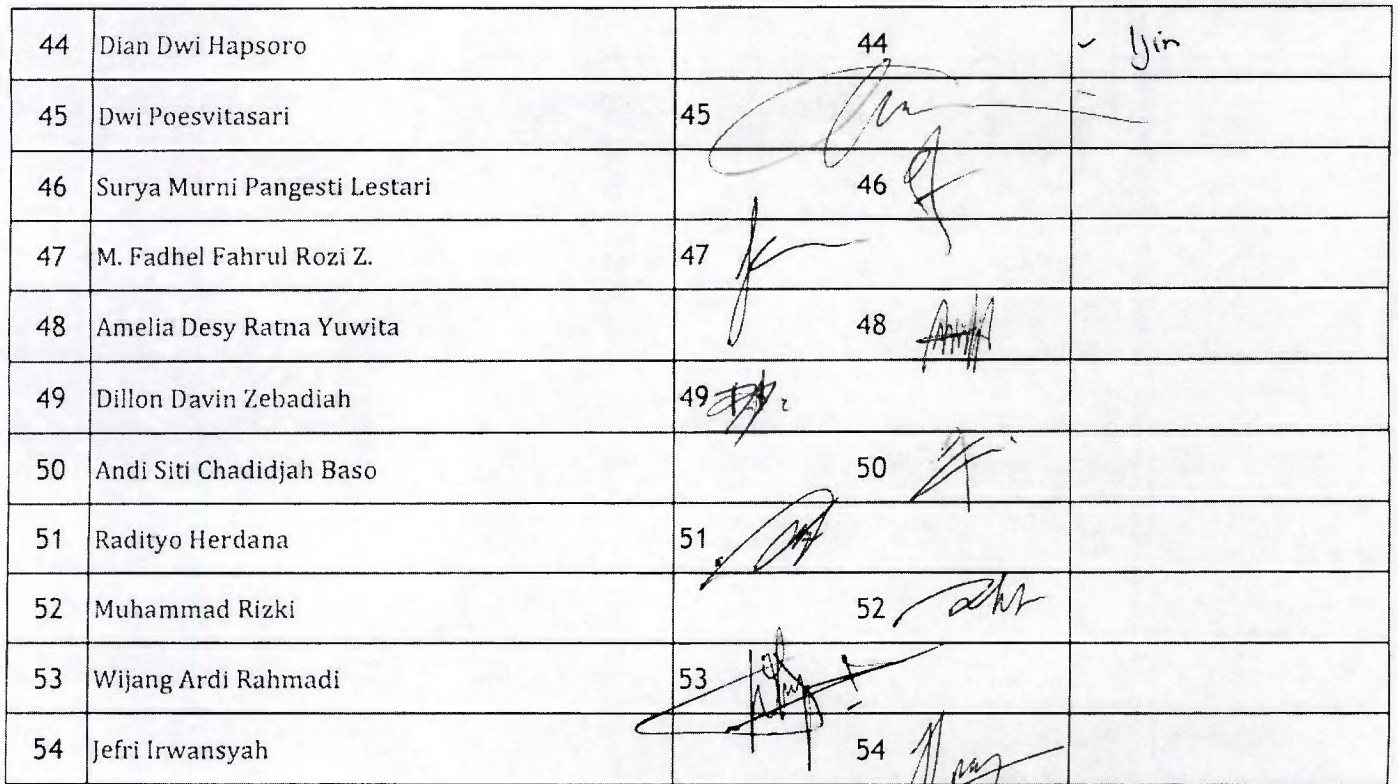 44 Dian Dwi Hapsoro 44 - Ijin
45 Dwi Poesvitasari 45
46 Surya Murni Pangesti Lestari 46
47 M. Fadhel Fahrul Rozi Z. 47
48 Amelia Desy Ratna Yuwita 48
49 Dillon Davin Zebadiah 49
50 Andi Siti Chadidjah Baso 50
51 Radityo Herdana 51
52 Muhammad Rizki 52
53 Wijang Ardi Rahmadi 53
54 Jefri Irwansyah 54